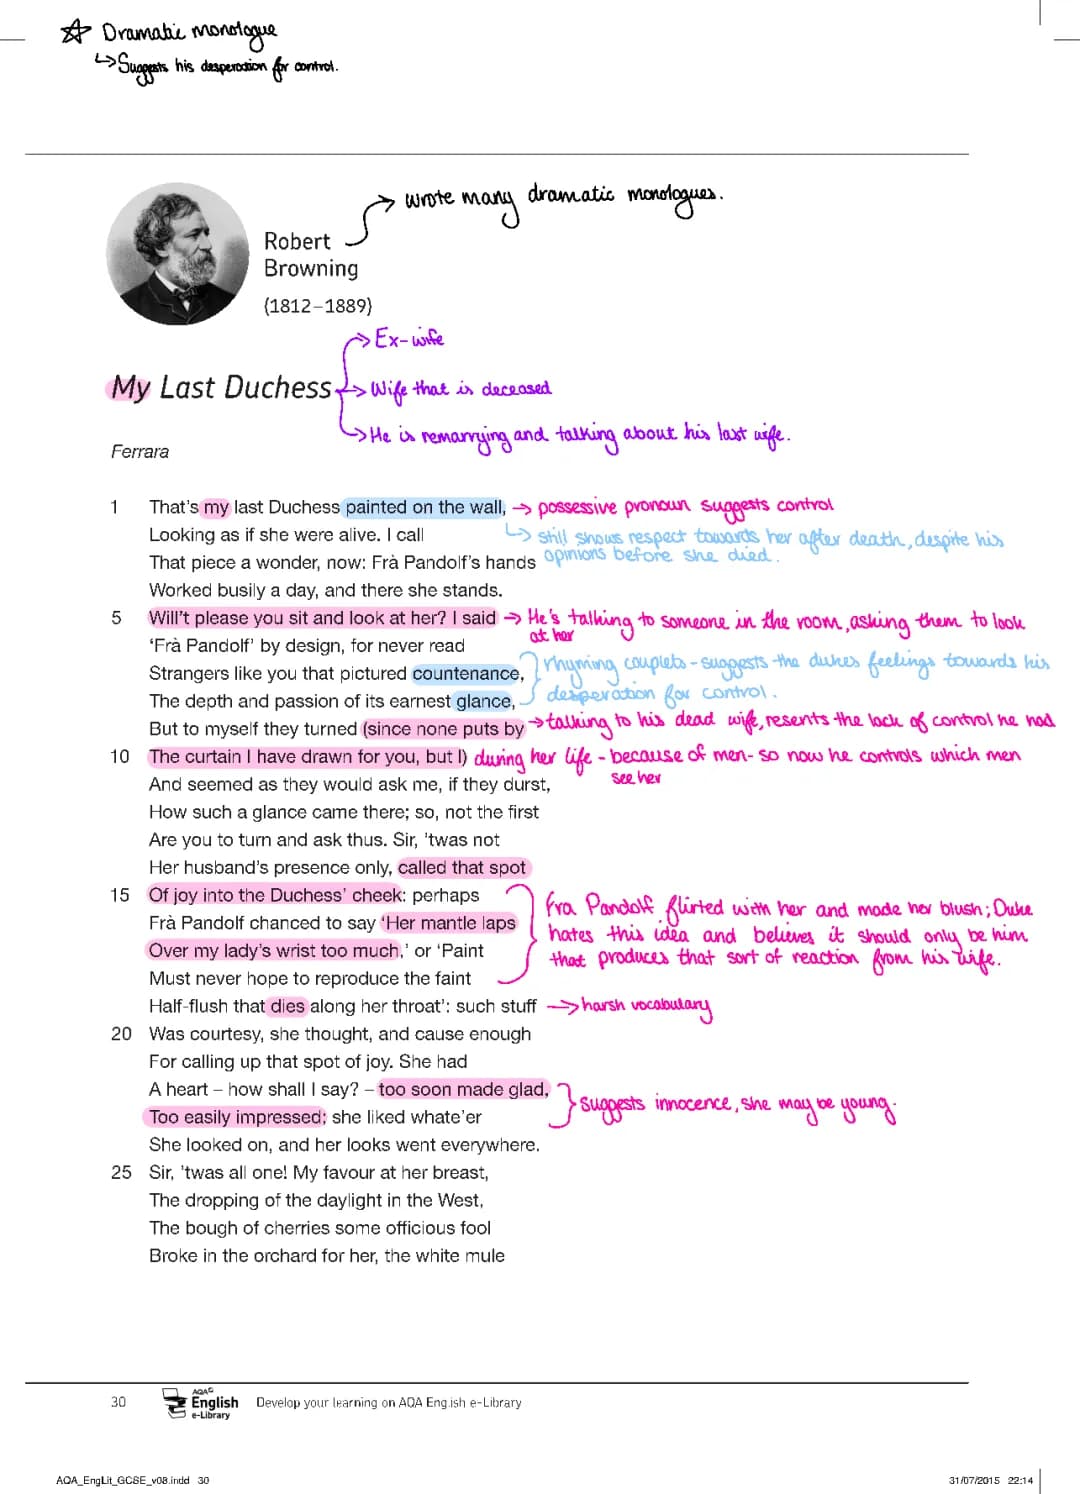 ☆ Dramatic monologue
↳ Suggests his desperation for control.
→ wrote many dramatic monologues.
Robert
Browning
(1812–1889)
→ Ex-wife
My Last Duchess → Wife that is deceased
→ He is remarrying and talking about his last wife.
Ferrara
1 That's my last Duchess painted on the wall, → possessive pronoun suggests control
Looking as if she were alive. I call ↳ still shows respect towards her after death, despite his
That piece a wonder, now: Frà Pandolf's hands opinions before she died.
Worked busily a day, and there she stands.
5 Will't please you sit and look at her? I said → He's talking to someone in the room, asking them to look
at her
'Frà Pandolf' by design, for never read
Strangers like you that pictured countenance, } rhyming couplets - suggests the dukes feelings towards his
The depth and passion of its earnest glance, desperation for control.
But to myself they turned (since none puts by → talking to his dead wife, resents the lack of control he had
10 The curtain I have drawn for you, but I) during her life - because of men - so now he controls which men
see her
And seemed as they would ask me, if they durst,
How such a glance came there; so, not the first
Are you to turn and ask thus. Sir, 'twas not
Her husband's presence only, called that spot
15 Of joy into the Duchess' cheek: perhaps
Fra Pandolf flirted with her and made her blush; Duke
Frà Pandolf chanced to say 'Her mantle laps
hates this idea and believes it should only be him
Over my lady's wrist too much,' or 'Paint
that produces that sort of reaction from his wife.
Must never hope to reproduce the faint
Half-flush that dies along her throat': such stuff → harsh vocabulary
20 Was courtesy, she thought, and cause enough
For calling up that spot of joy. She had
A heart – how shall I say? – too soon made glad,
Too easily impressed; she liked whate'er } Suggests innocence, she may be young.
She looked on, and her looks went everywhere.
25 Sir, 'twas all one! My favour at her breast,
The dropping of the daylight in the West,
The bough of cherries some officious fool
Broke in the orchard for her, the white mule
30 AQA English e-Library Develop your learning on AQA English e-Library
AQA_EngLit_GCSE_v08.indd 30 31/07/2015 22:14